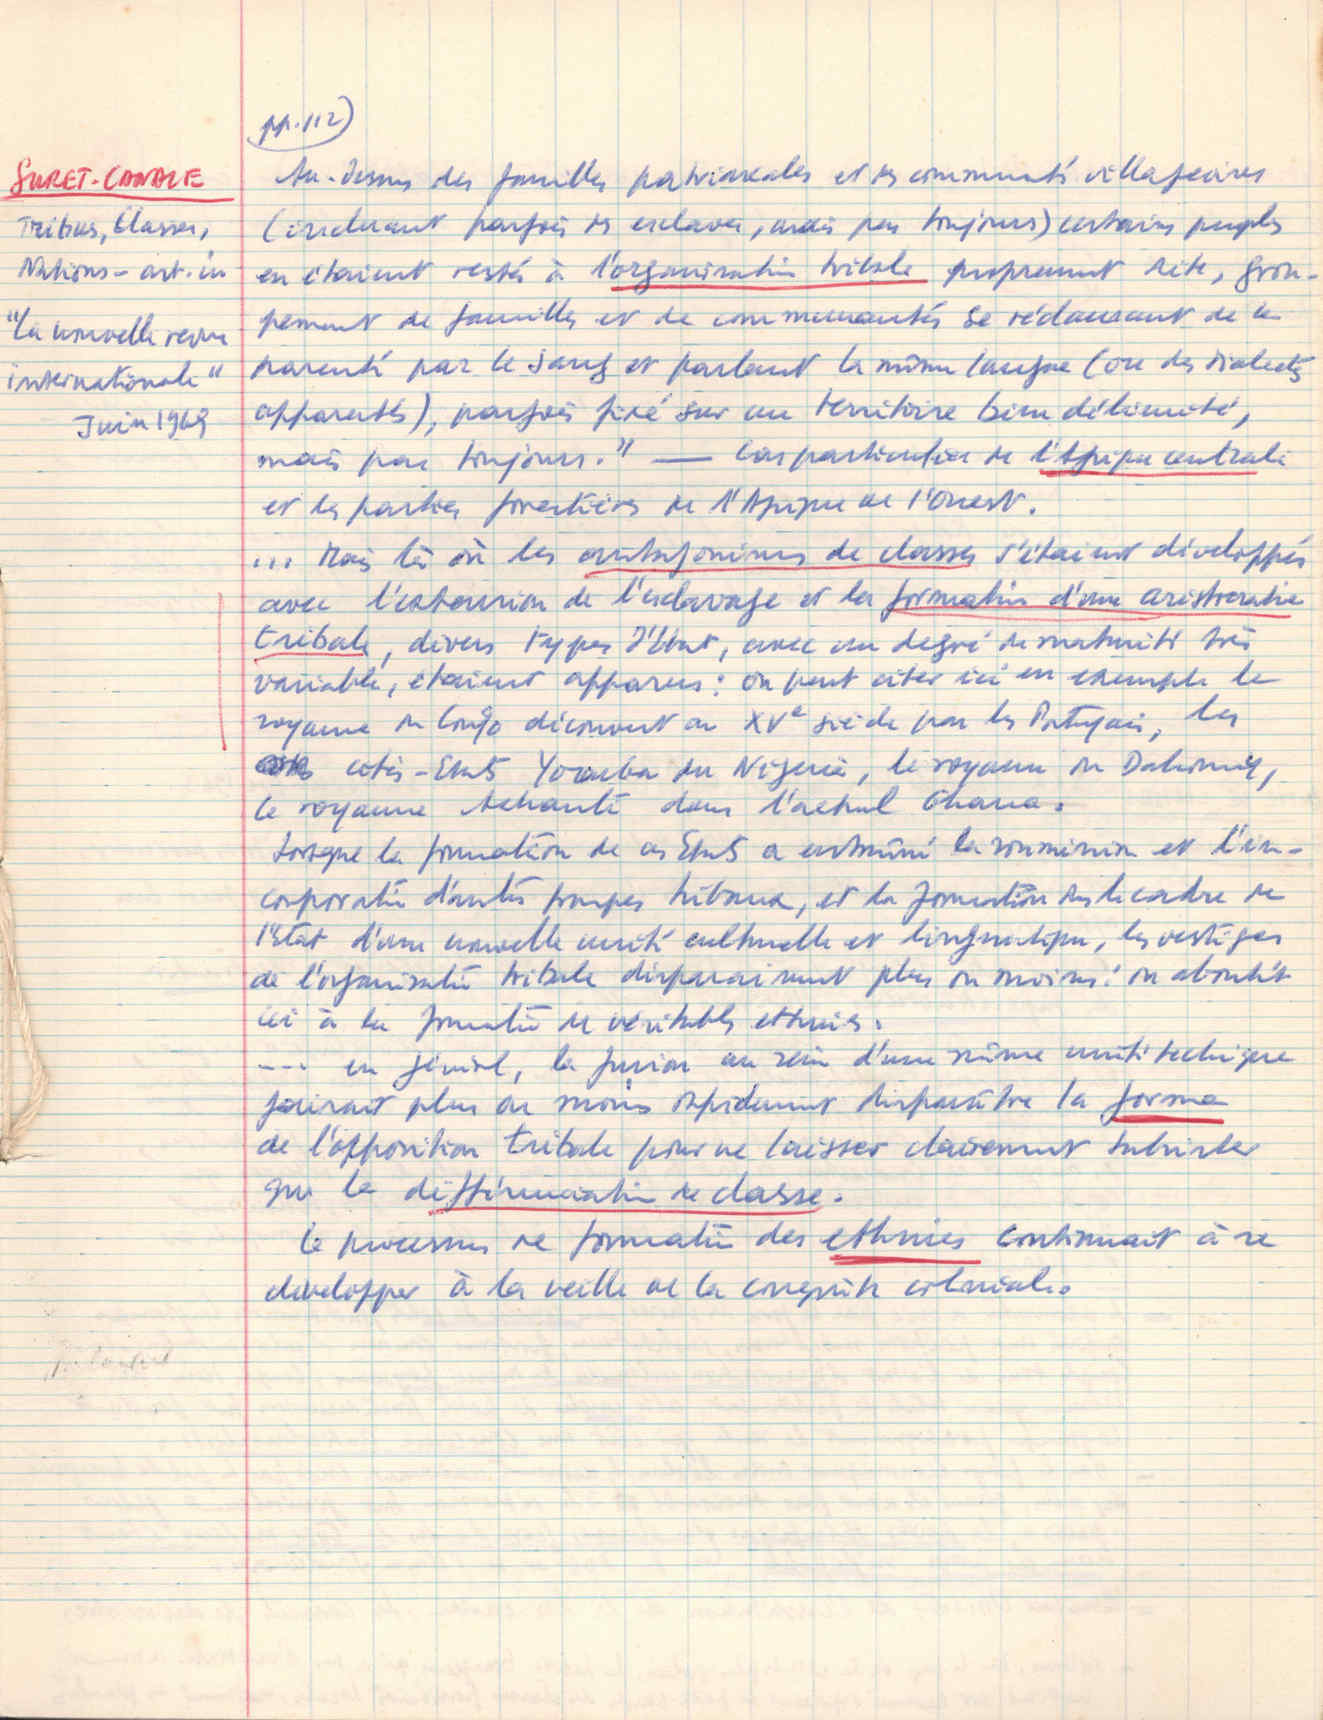 pp. 112)
SURET-CANALE
Tribus, Classes,
Nations - art. in
"La nouvelle revue
internationale"
Juin 1969
Au-dessus des familles patriarcales et des communautés villageoises
(incluant parfois des esclaves, mais pas toujours) certains peuples
en étaient restés à l'organisation tribale proprement dite, grou-
pement de familles et de communautés se réclamant de la
parenté par le sang et parlant la même langue (ou des dialectes
apparentés), parfois fixé sur un territoire bien délimité,
mais pas toujours." — Cas particulier de l'Afrique centrale
et les parties forestières de l'Afrique de l'Ouest.
... Mais là où les antagonismes de classes s'étaient développés
avec l'extension de l'esclavage et la formation d'une aristocratie
tribale, divers types d'Etat, avec un degré de maturité très
variable, étaient apparus : on peut citer ici en exemple le
royaume du Congo découvert au XVe siècle par les Portugais, les
cités-Etats Yorouba du Nigeria, le royaume du Dahomey,
le royaume Achanti dans l'actuel Ghana.
Lorsque la formation de ces Etats a entraîné la soumission et l'in-
corporation d'autres groupes tribaux, et la formation dans le cadre de
l'Etat d'une nouvelle unité culturelle et linguistique, les vestiges
de l'organisation tribale disparaissent plus ou moins : on aboutit
ici à la formation de véritables ethnies.
--- en général, la fusion au sein d'une même unité ethnique
faisait plus ou moins rapidement disparaître la forme
de l'opposition tribale pour ne laisser clairement subsister
que la différenciation de classe.
Le processus de formation des ethnies continuait à se
développer à la veille de la conquête coloniale.